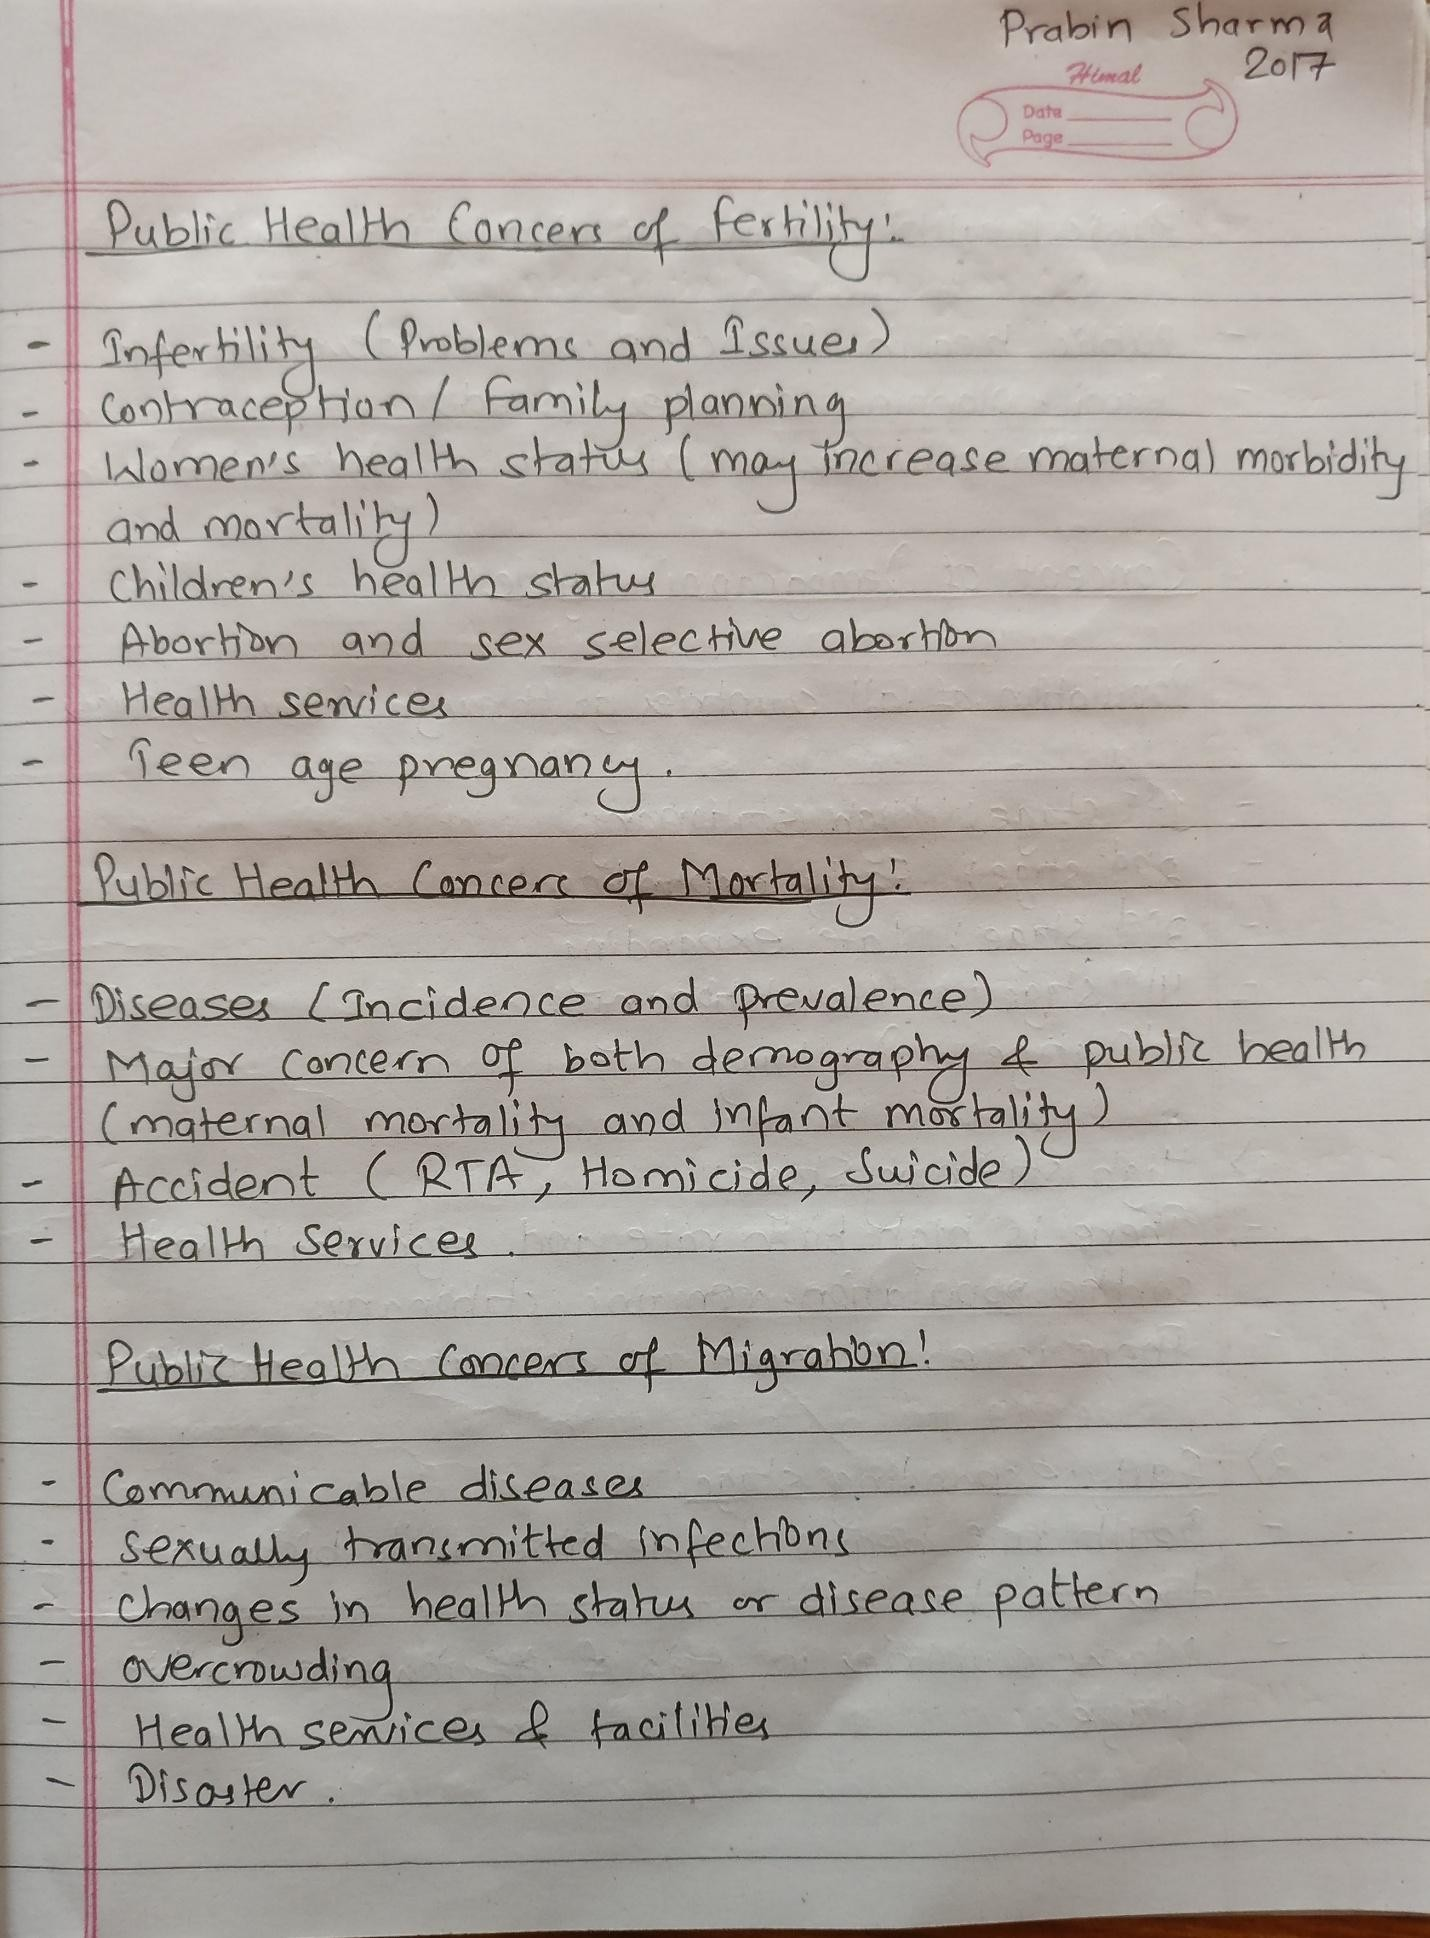 Prabin Sharma
2017
Himal
Date
Page
Public Health Concers of fertility:
- Infertility (Problems and Issues)
- Contraception/ family planning
- Women's health status (may increase maternal morbidity
and mortality)
- Children's health status
- Abortion and sex selective abortion
- Health services
- Teen age pregnancy.
Public Health Concers of Mortality:
- Diseases (Incidence and prevalence)
- Major concern of both demography & public health
(maternal mortality and infant mortality)
- Accident (RTA, Homicide, Suicide)
- Health Services.
Public Health Concers of Migration:
- Communicable diseases
- sexually transmitted infections
- changes in health status or disease pattern
- overcrowding
- Health services & facilities
- Disaster.